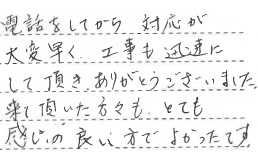 電話をしてから 対応が
大変早く、工事も迅速に
して頂き、ありがとうございました。
来て頂いた方々も、とても
感じの良い方でよかったです。